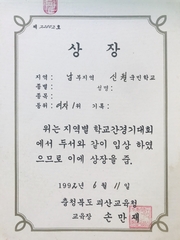 상장
지역: 남부지역 신 국민학교
종별: 성명:
종목:
등위: 1위 기록:
위는 지역별 학교간경기대회
에서 두서와 같이 입상 하였
으므로 이에 상장을 줌.
1992년 6월 11일
충청북도 괴산교육청
교육장 손만재